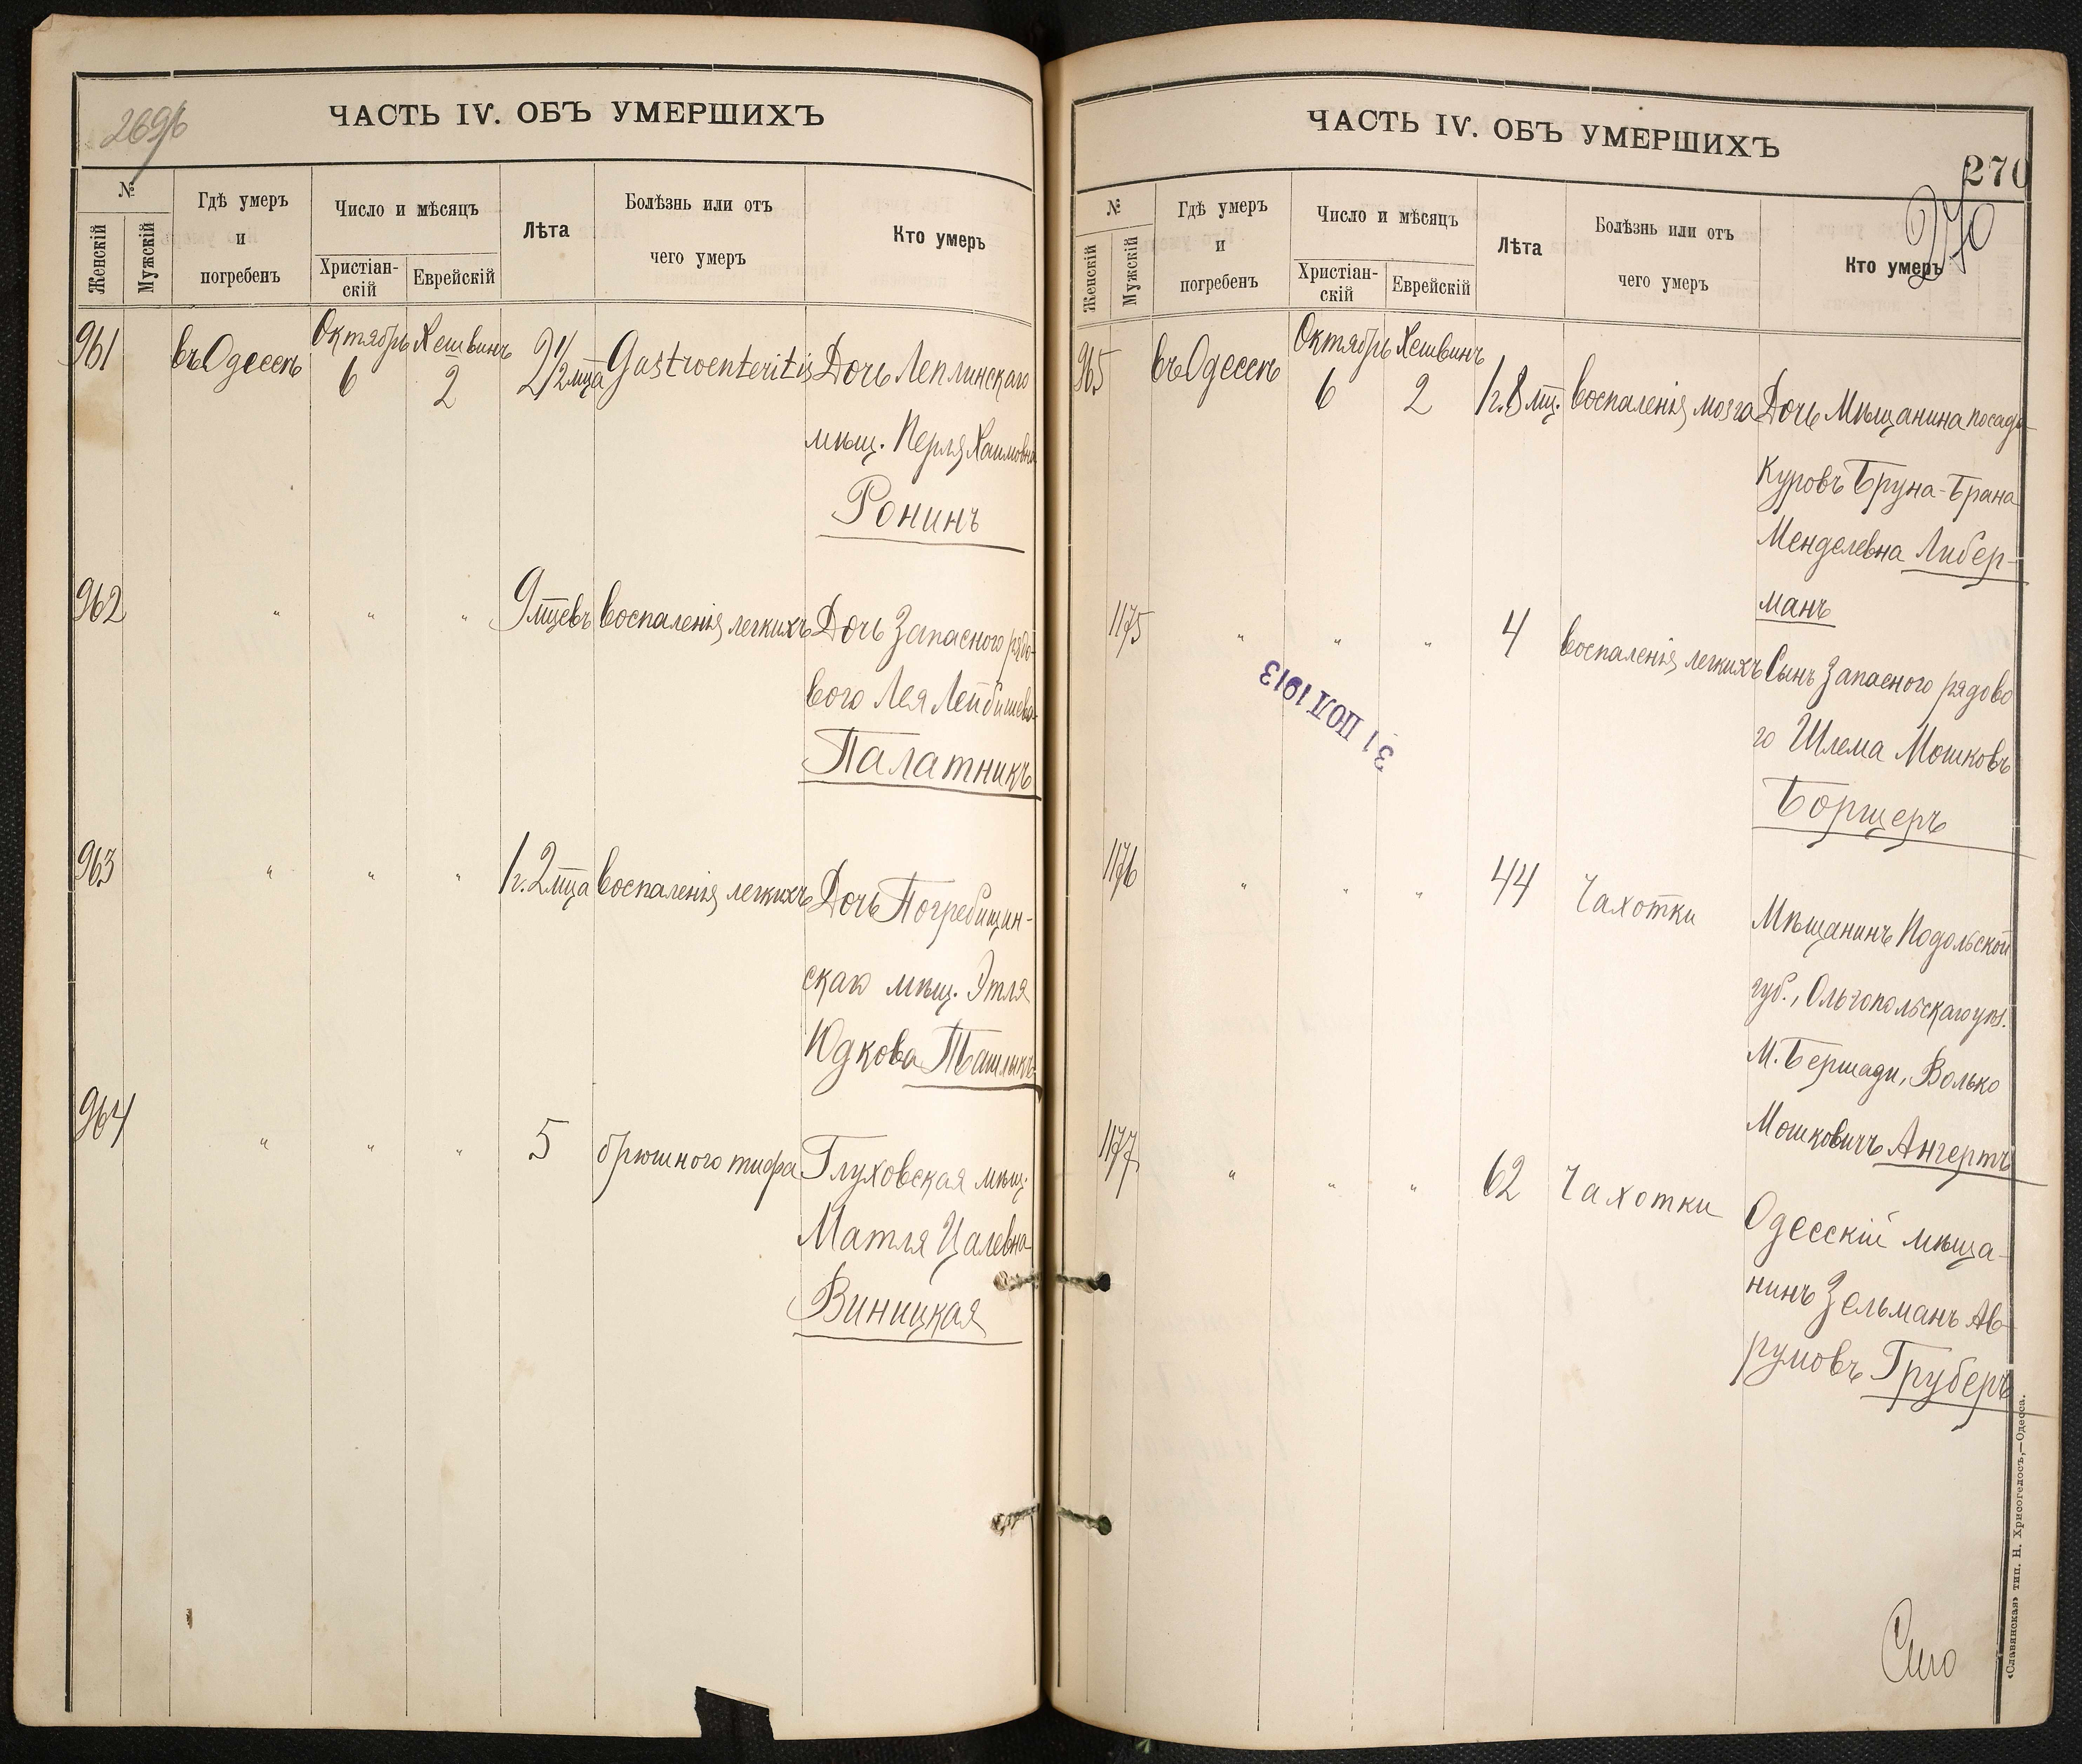 269/б
ЧАСТЬ IV. ОБЪ УМЕРШИХЪ
№
Женскій
Мужскій
Гдѣ умеръ
и
погребенъ
Число и мѣсяцъ
Христіан-
скій
Еврейскій
Лѣта
Болѣзнь или отъ
чего умеръ
Кто умеръ
961
въ Одессѣ
Октябрь
6
Хешвинъ
2
2 1/2 мца
Gastroenteritis
Дочь Леплинскаго
мѣщ. Перля Хаимовна
Ронинъ
962
"
"
"
9 мцевъ
воспаленія легкихъ
Дочь Запасного рядо-
вого Лея Лейбишева-
Палатникъ
963
"
"
"
1 г. 2 мца
воспаленія легкихъ
Дочь Погребищин-
скаго мѣщ. Этля
Юдкова Ташлыкъ
964
"
"
"
5
брюшного тифа
Глуховская мѣщ.
Матля Цалевна
Виницкая
ЧАСТЬ IV. ОБЪ УМЕРШИХЪ
270
270
№
Женскій
Мужскій
Гдѣ умеръ
и
погребенъ
Число и мѣсяцъ
Христіан-
скій
Еврейскій
Лѣта
Болѣзнь или отъ
чего умеръ
Кто умеръ
965
въ Одессѣ
Октябрь
6
Хешвинъ
2
1 г. 8 мц.
воспаленія мозга
Дочь Мѣщанина посада
Куровъ Бруна-Брана
Менделевна Либер-
манъ
1175
"
"
"
4
воспаленія легкихъ
Сынъ Запасного рядово
го Шлема Мошковъ
Борщеръ
31 ІЮЛ 1913
1176
"
"
"
44
Чахотки
Мѣщанинъ Подольской
губ., Ольгопольскаго уѣз.
М. Бершади, Волько
Мошковичъ Ангертъ
1177
"
"
"
62
Чахотки
Одесскій мѣща-
нинъ Зельманъ Ав-
румовъ Груберъ
«Славянская» тип. Н. Хрисогелосъ,—Одесса.